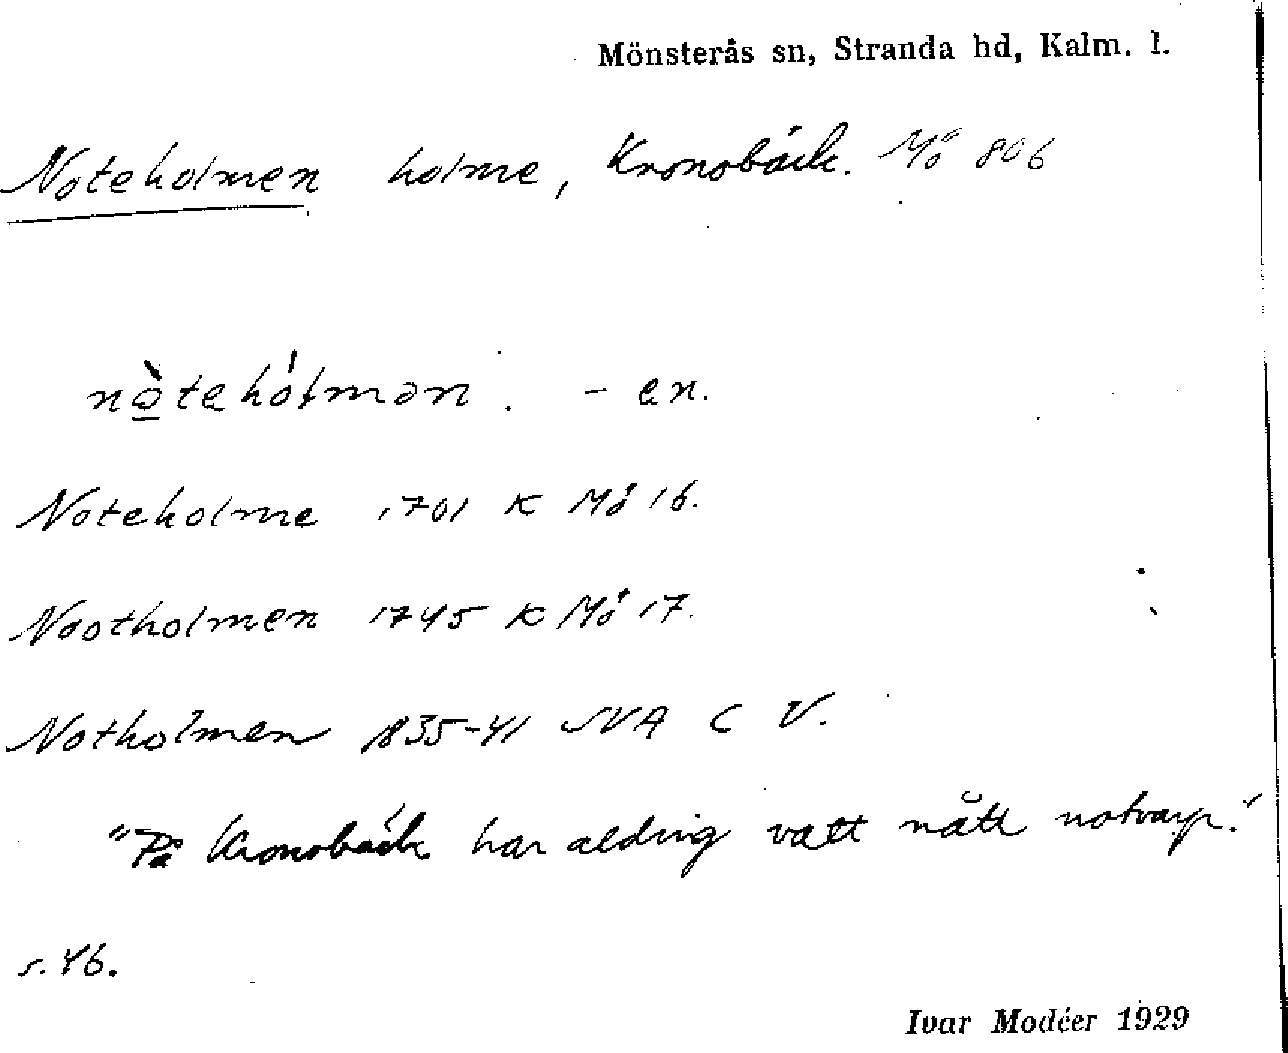 Mönsterås sn, Stranda hd, Kalm. l.
Noteholmen holme, Kronobäck. Mö 806
nòtehólmən. - en.
Noteholme 1701 K Mö 16.
Nootholmen 1745 K Mö 17.
Notholmen 1835-41 SVA C V.
"På Kronobäck har aldrig vatt nått notvarp."
s. 46.
Ivar Modéer 1929